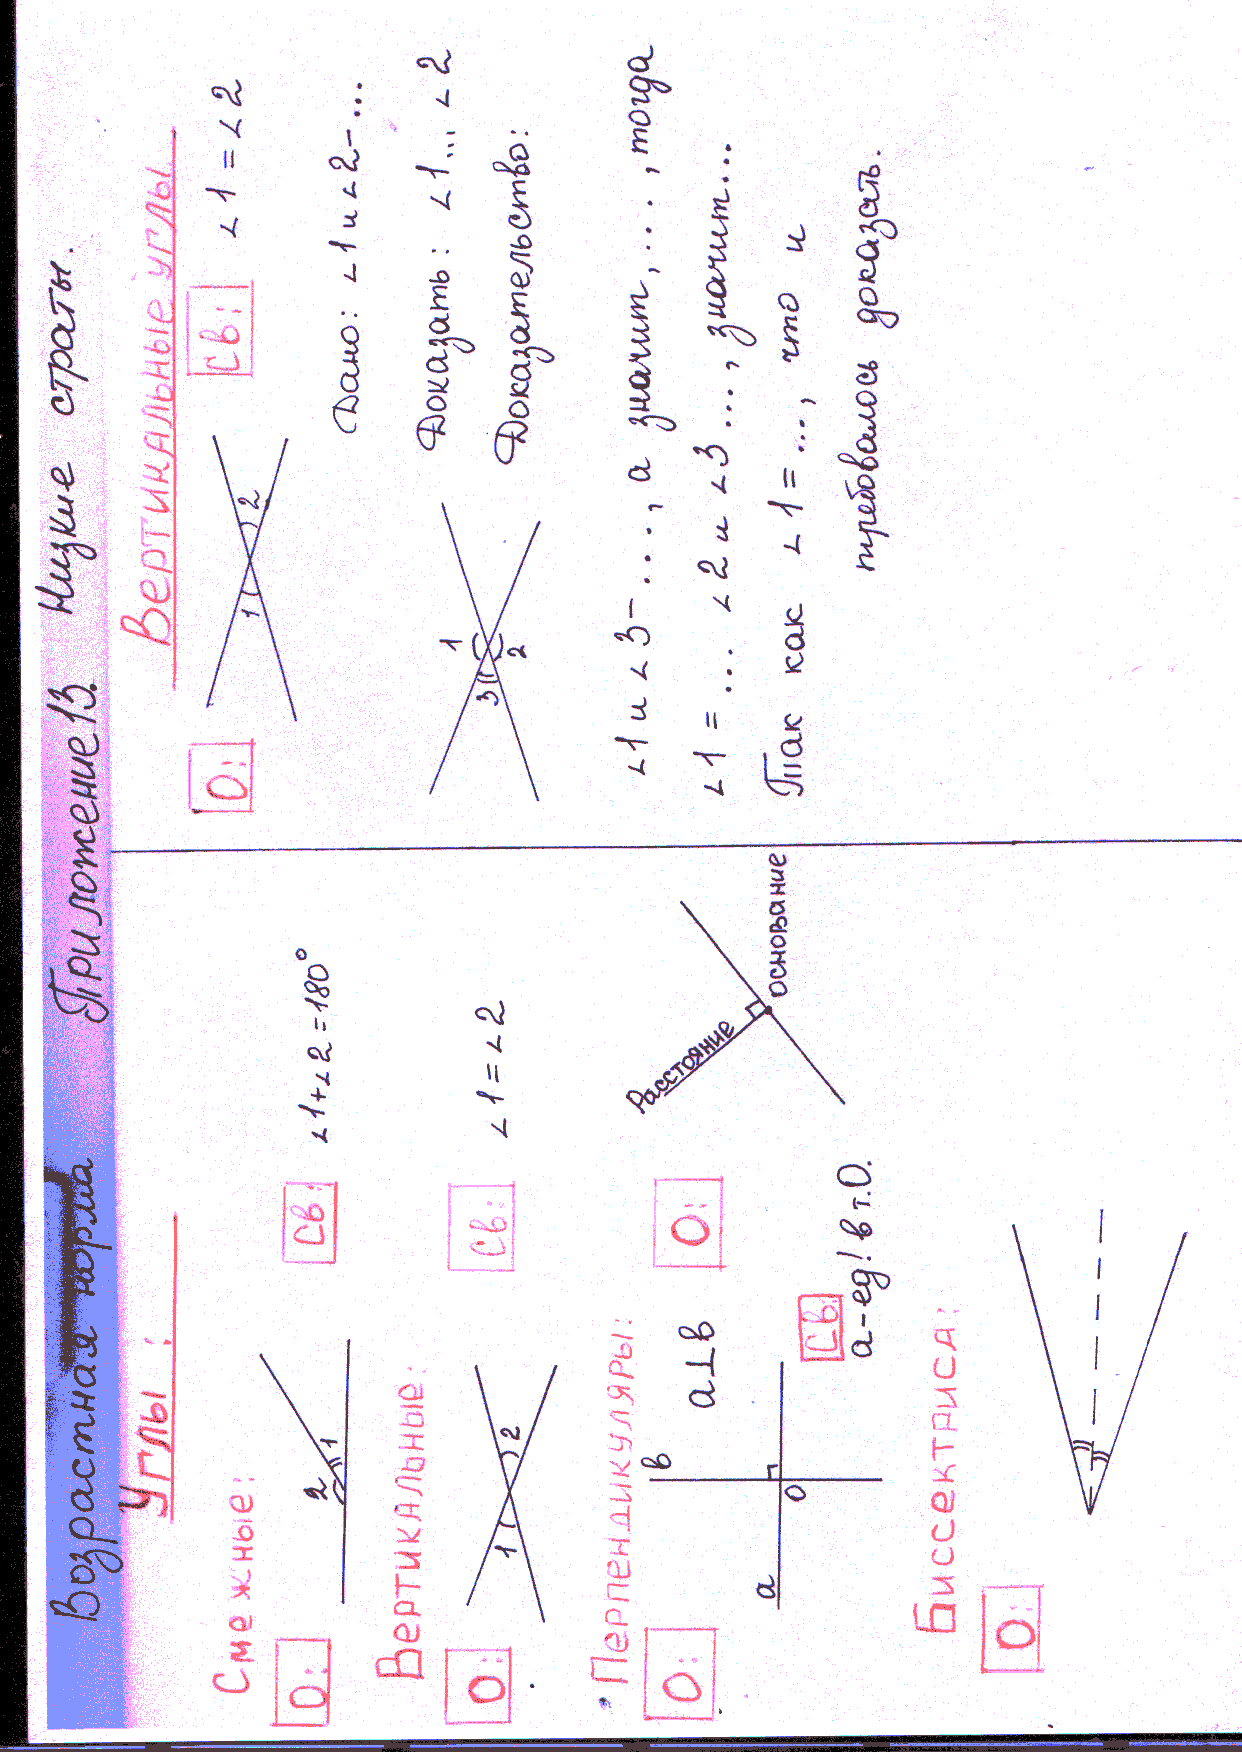 Возрастная норма Приложение 13. Низкие страты.
Углы:
Смежные:
О:
2 1
Св:
∠1+∠2=180°
Вертикальные:
О:
1 2
Св:
∠1=∠2
Перпендикуляры:
О:
а
в
О
а⊥в
Св:
а-ед! в т.О.
О:
Расстояние
основание
Биссектриса:
О:
Вертикальные углы
О:
1 2
Св:
∠1=∠2
3 1 2
Дано: ∠1 и ∠2-...
Доказать: ∠1...∠2
Доказательство:
∠1 и ∠3-...., а значит,...., тогда
∠1=... ∠2 и ∠3..., значит...
Так как ∠1=..., что и
требовалось доказать.